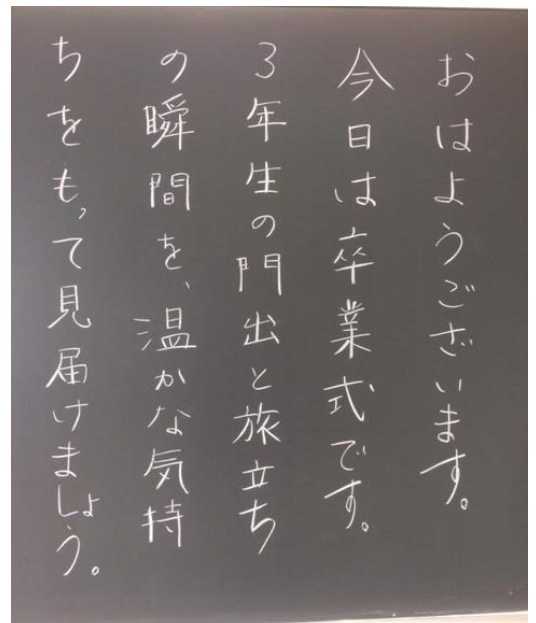 おはようございます。
今日は卒業式です。
3年生の門出と旅立ち
の瞬間を、温かな気持
ちをもって見届けましょう。